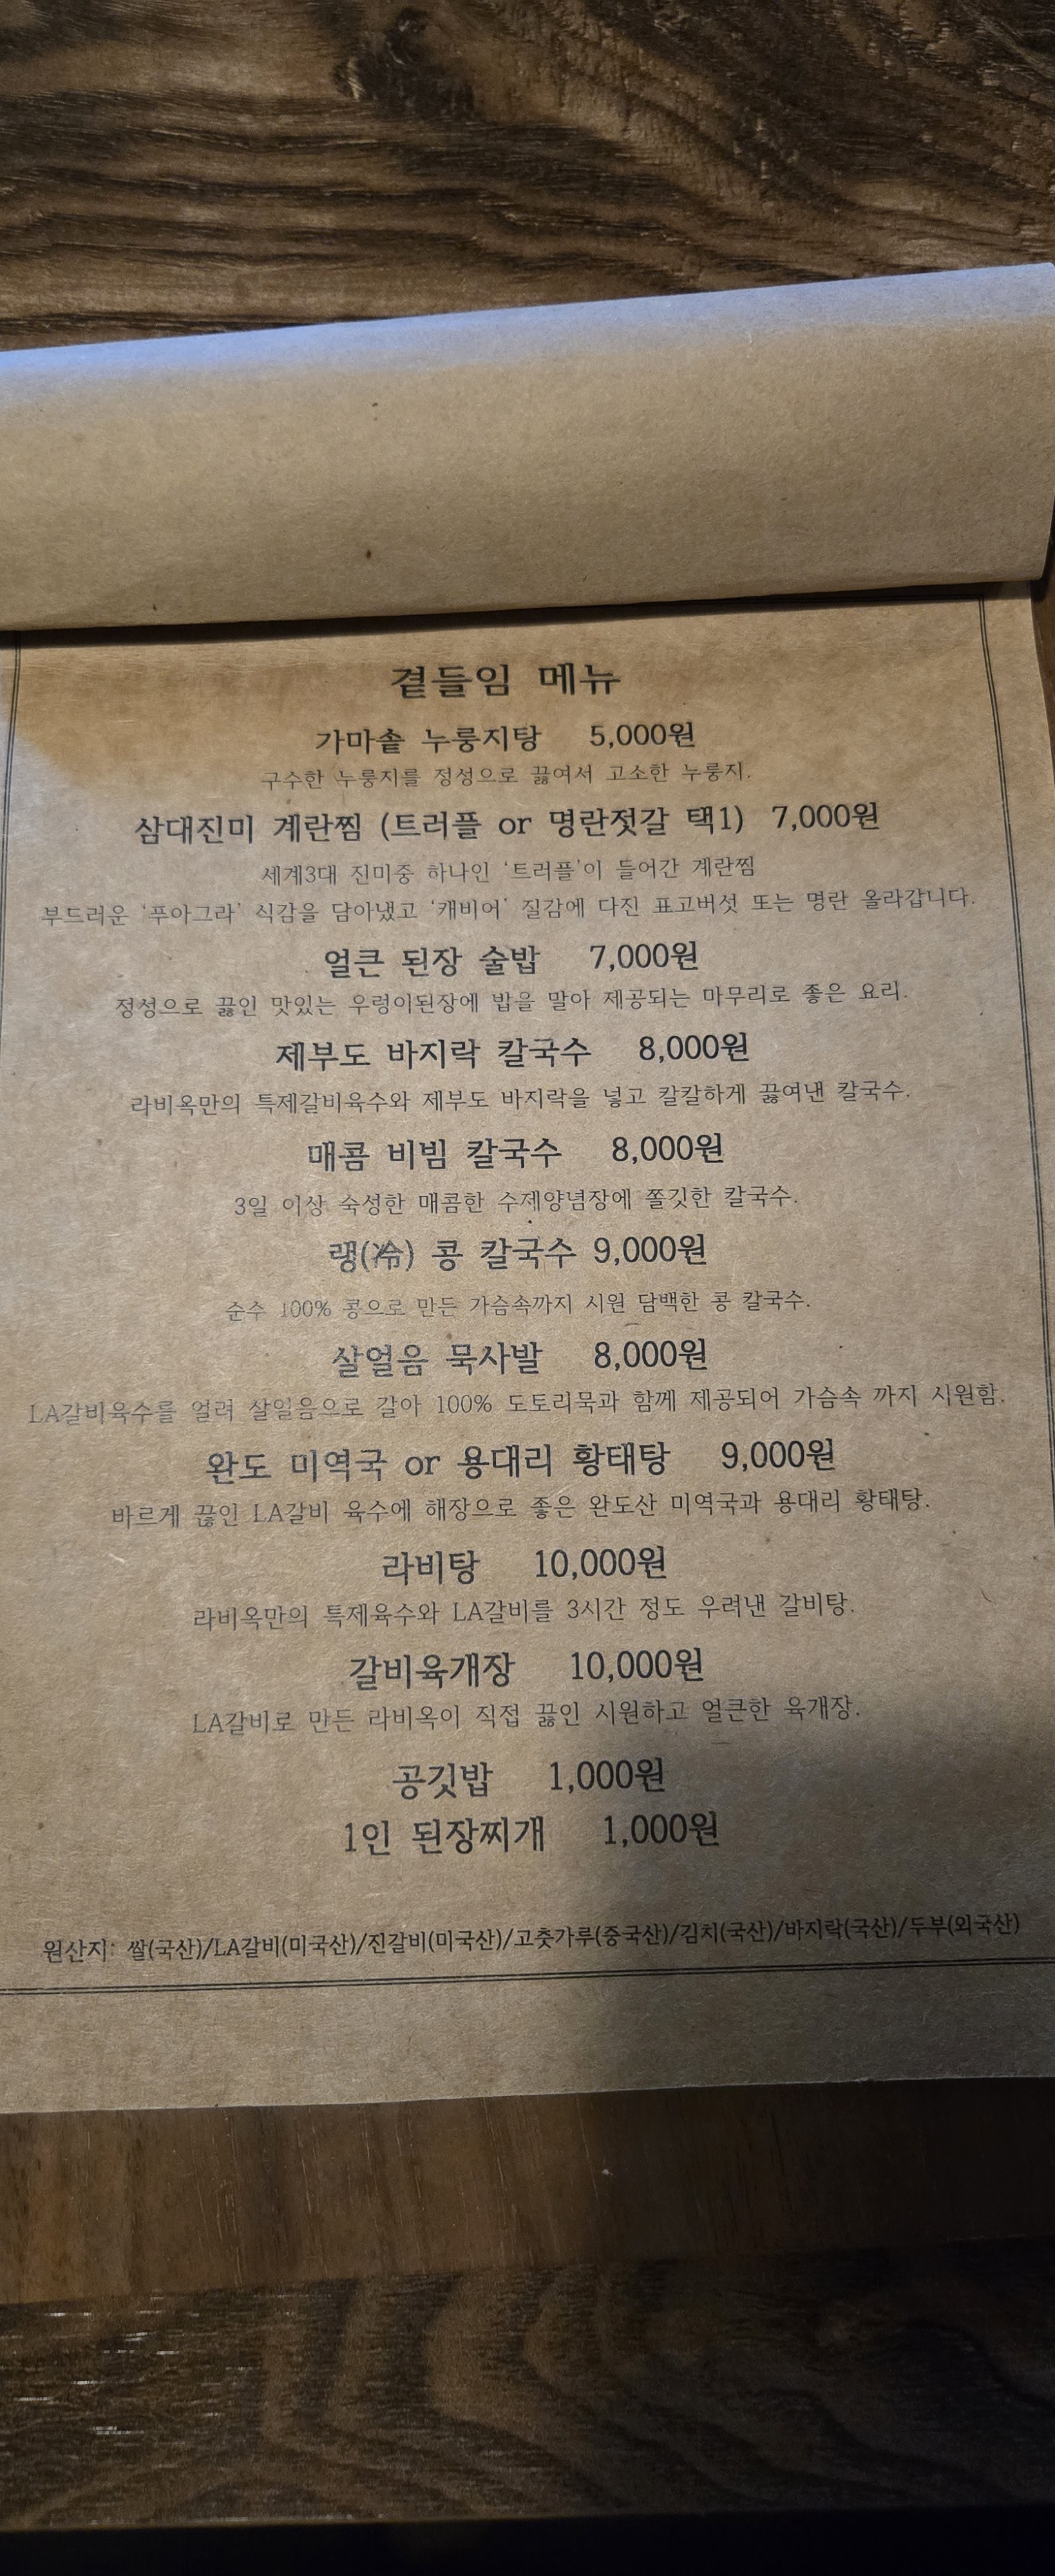 곁들임 메뉴
가마솥 누룽지탕 5,000원
구수한 누룽지를 정성으로 끓여서 고소한 누룽지.
삼대진미 계란찜 (트러플 or 명란젓갈 택1) 7,000원
세계3대 진미중 하나인 '트러플'이 들어간 계란찜
부드러운 '푸아그라' 식감을 담아냈고 '캐비어' 질감에 다진 표고버섯 또는 명란 올라갑니다.
얼큰 된장 술밥 7,000원
정성으로 끓인 맛있는 우렁이된장에 밥을 말아 제공되는 마무리로 좋은 요리.
제부도 바지락 칼국수 8,000원
라비옥만의 특제갈비육수와 제부도 바지락을 넣고 칼칼하게 끓여낸 칼국수.
매콤 비빔 칼국수 8,000원
3일 이상 숙성한 매콤한 수제양념장에 쫄깃한 칼국수.
랭(冷) 콩 칼국수 9,000원
순수 100% 콩으로 만든 가슴속까지 시원 담백한 콩 칼국수.
살얼음 묵사발 8,000원
LA갈비육수를 얼려 살얼음으로 갈아 100% 도토리묵과 함께 제공되어 가슴속 까지 시원함.
완도 미역국 or 용대리 황태탕 9,000원
바르게 끓인 LA갈비 육수에 해장으로 좋은 완도산 미역국과 용대리 황태탕.
라비탕 10,000원
라비옥만의 특제육수와 LA갈비를 3시간 정도 우려낸 갈비탕.
갈비육개장 10,000원
LA갈비로 만든 라비옥이 직접 끓인 시원하고 얼큰한 육개장.
공깃밥 1,000원
1인 된장찌개 1,000원
원산지: 쌀(국산)/LA갈비(미국산)/진갈비(미국산)/고춧가루(중국산)/김치(국산)/바지락(국산)/두부(외국산)